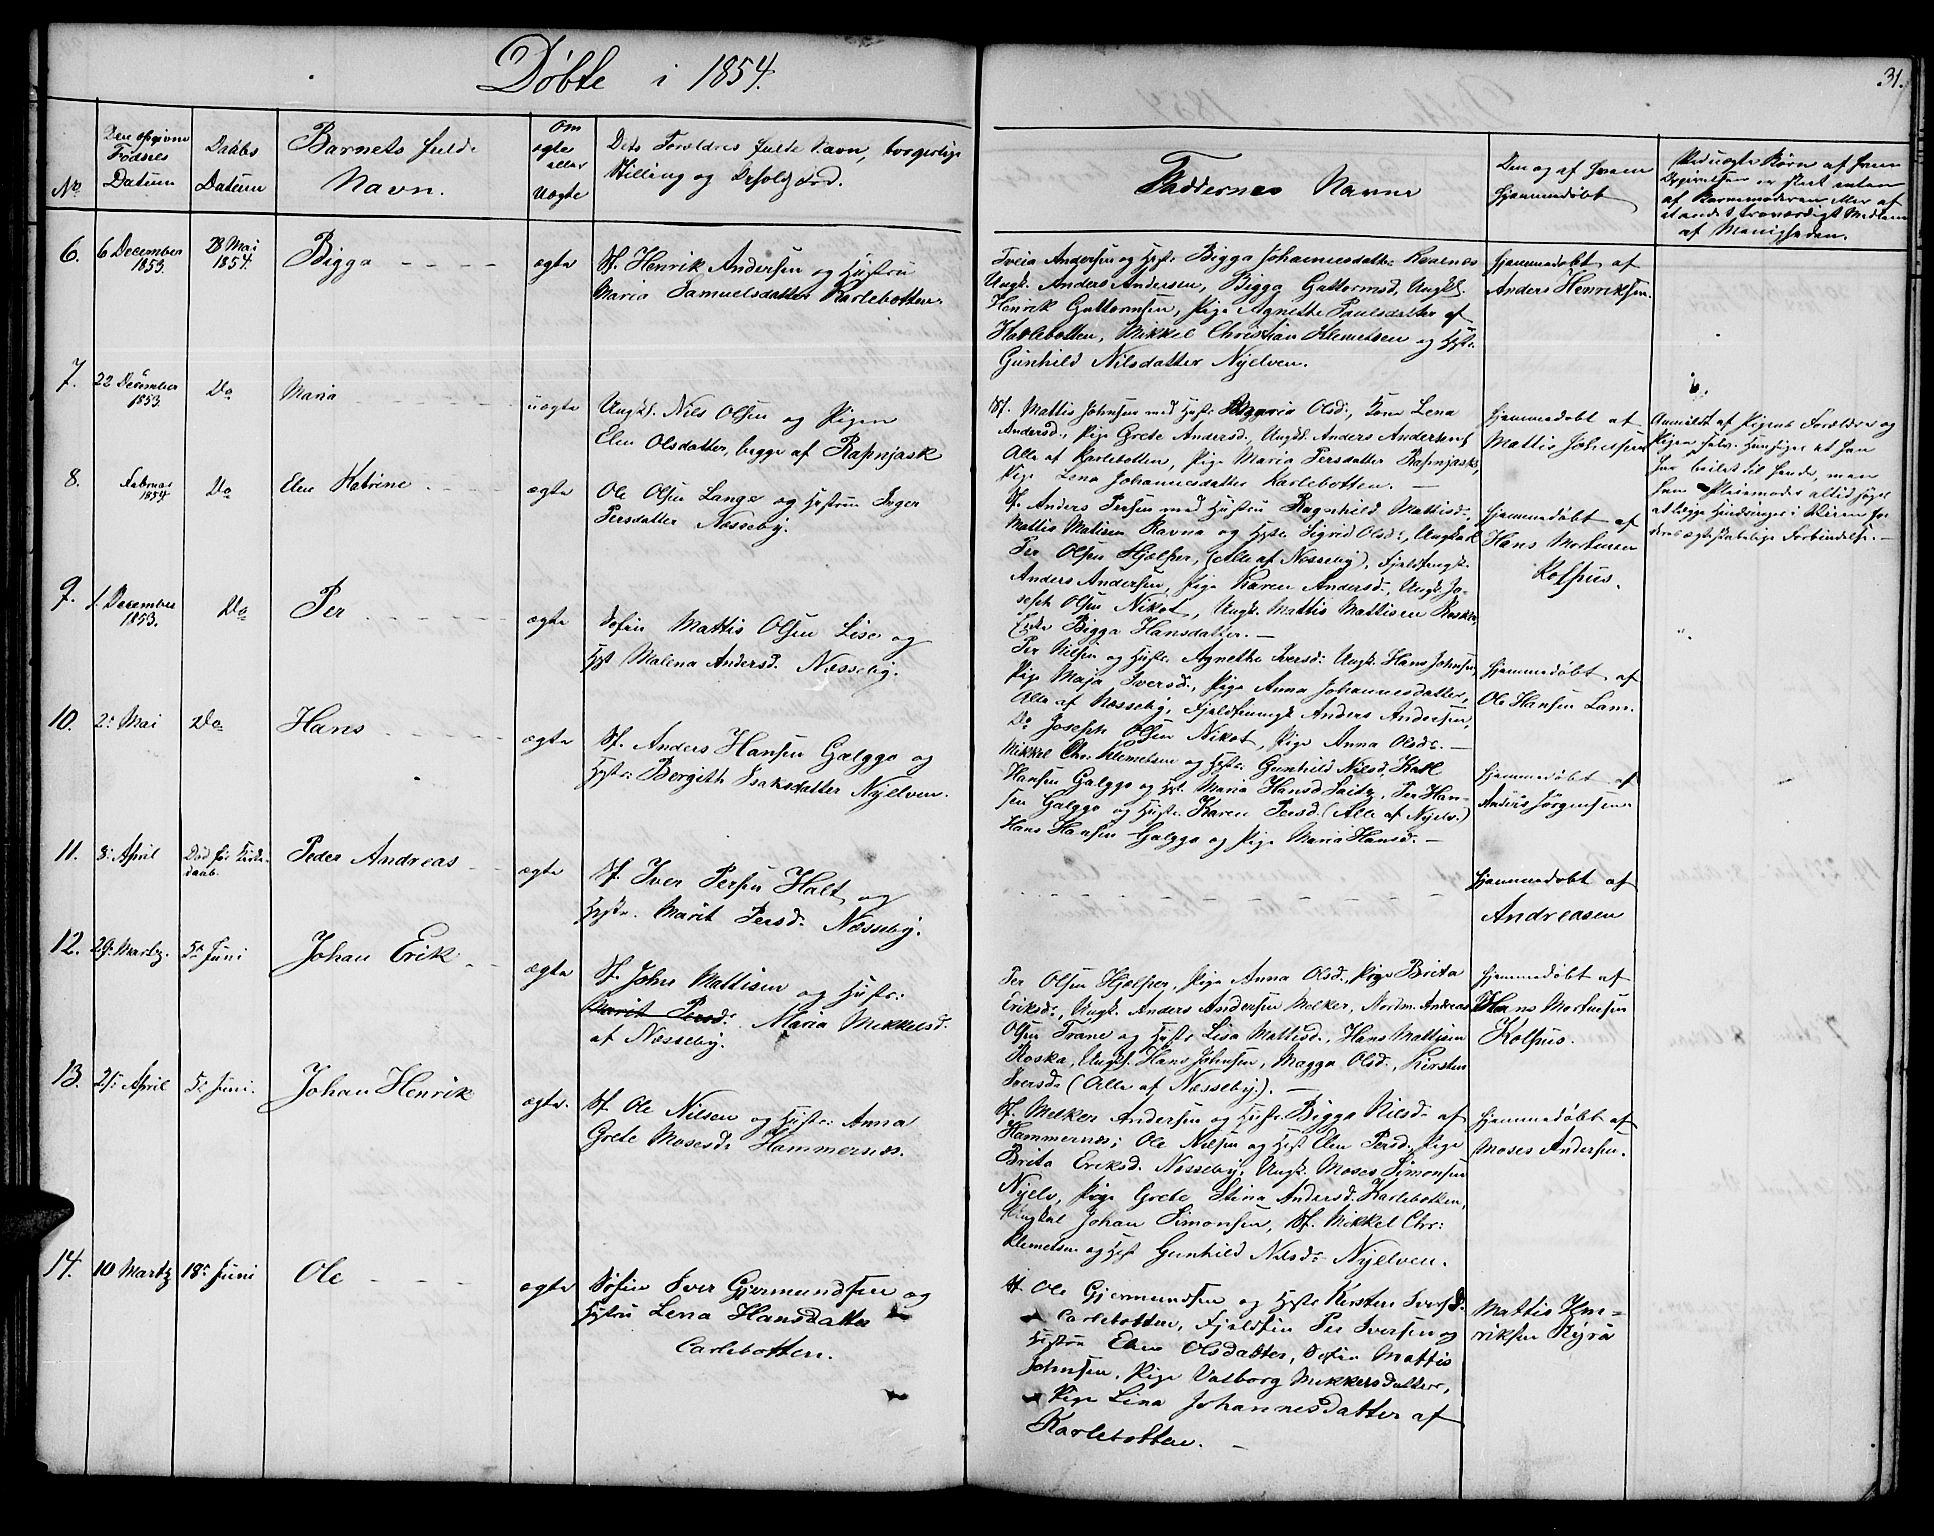 Døbte i 1854.
31.
No
Den opgivne Fødsels Datum
Daabs Datum
Barnets fulde Navn.
Om ægte eller Uægte
Dets Forældres fulde Navn, borgerlige
Stilling og Opholdssted.
Faddernes Navne
Den og af hvem
hjemmedøbt
Ved uægte Børn af hvem
Opgivelsen er skeet enten
af Barnemoderen eller af
et andet troværdigt Medlem
af Menigheden.
6.
6 December 1853.
28 Mai 1854.
Bigga
ægte
Sf. Henrik Andersen og Hustru
Maria Samuelsdatter Karlebotten.
Andersen og Hst: Bigga Johannesdatter
Ungk. Anders Andersen, Bigga Guttormsd, Ungk.
Henrik Guttormsen, Pige Agnethe Paulsdatter af
Karlebotten, Mikkel Christian Klemetsen og Hst:
Gunhild Nilsdatter Nyelven.
hjemmedøbt af
Anders Henriksen.
7.
22 December 1853.
Do
Maria
uægte
Ungk. Nils Olsen og Pigen
Elen Olsdatter, begge af Rapnjask
Sf. Mattis Johnsen med Hstr Maria Olsd:, Kone Lena
Andersd:, Pige Grete Andersd:, Ungk. Anders Andersen
Alle af Karlebotten, Pige Maria Persdatter Rapnjask,
Pige Lena Johannesdatter Karlebotten. —
hjemmedøbt af
Mattis Johnsen
Anmeldt af Pigens Forældre og
Pigen selv. Hun siger at han
har beilet til hende, men
hans Pleiemoder altid søgt
at lægge Hindringer i Veien for
deres ægteskabelige Forbindelse. —
8.
Februar 1854
Do
Elen Katrine
ægte
Ole Olsen Lange og Hustru Inger
Persdatter Næsseby.
Sf. Anders Persen med Hustru Ragnhild Mattisd:
Mattis Matisen Ravna og Hst: Sigrid Olsd:, Ungkarl
Per Olsen Hjelper, (Alle af Næsseby), Fjeldf.ungk.
Anders Andersen, Pige Karen Andersd:, Ungk. Jo-
seph Olsen Nikot, Ungk. Mattis Mattisen Roska
Enke Bigga Hansdatter. —
hjemmedøbt af
Hans Mortensen
Kolpus.
9.
1. December 1853.
Do
Per
ægte
Søfin Mattis Olsen Lise og
Hst Malena Andersd. Næsseby.
Per Nilsen og Hustr: Agnethe Iversd: Ungk. Hans Johnsen,
Pige Maja Iversd:, Pige Anna Johannesdatter,
Alle af Næsseby, Fjeldfinungk. Anders Andersen,
Do Joseph Olsen Nikot, Pige Anna Olsd: —
hjemmedøbt af
Ole Hansen Lam.
10.
2: Mai
Do
Hans
ægte
Sf. Anders Hansen Galggo og
Hstr: Bergith Isaksdatter Nyelven.
Mikkel Chr: Klemetsen og Hstr: Gunhild Nilsd,
Hansen Galggo og Hst: Maria Hansd Per Han-
sen Galggo og Hustr: Karen Persd. (Alle af Nyelv.)
Hans Hansen Galggo og Pige Maria Hansd. —
hjemmedøbt af
Anders Jørgensen
11.
3: April
Død før Kirke-
daab.
Peder Andreas
ægte
Sf. Iver Persen Halt og
Hstr. Marit Persd: Næsseby.
hjemmedøbt af
Andreasen
12.
29: Martz.
5: Juni
Johan Erik
ægte
Sf. John Mattisen og Hustr:
Marit Persd: Maria Mikkelsd.
af Næsseby.
Per Olsen Hjelper, Pige Anna Olsd: Pige Brita
Eriksd:, Ungk. Anders Andersen Melker, Nordm. Andreas
Olsen Trane og Hstr Lisa Mattisd:, Hans Mattisen
Roska, Ungk. Hans Johnsen, Magga Olsd:, Kirsten
Iversd: (Alle af Næsseby.). —
hjemmedøbt af
Hans Mortensen
Kolpus.
13.
25: April
5: Juni.
Johan Henrik
ægte.
Sf. Ole Nilsen og Hustr: Anna
Grete Mosesd: Hammernæs.
Sf. Melker Andersen og Hustr: Bigga Nilsd: af
Hammernæs; Ole Nilsen og Hst Elen Persd. Pige
Brita Eriksd. Næsseby, Ungk. Moses Simonsen
Nyelv, Pige Grete Stina Andersd. Karlebotten,
Ungkal Johan Simonsen, Sf. Mikkel Chr:
Klemetsen og Hst Gunhild Nilsd: Nyelven.
hjemmedøbt af
Moses Andersen.
14.
10 Martz
18: Juni
Ole
ægte
Søfin Iver Gjermundsen og
Hustru Lena Hansdatter
Carlebotten.
Sf Ole Gjermundsen og Hstr Kersten Iversd.
Carlebotten, Fjeldfin Per Iversen og
Hustru Elen Olsdatter, Søfin Mattis
Johnsen, Pige Valborg Mikkelsdatter,
Pige Lina Johannesdatter af
Karlebotten. —
Mattis Hen=
riksen Kyrø